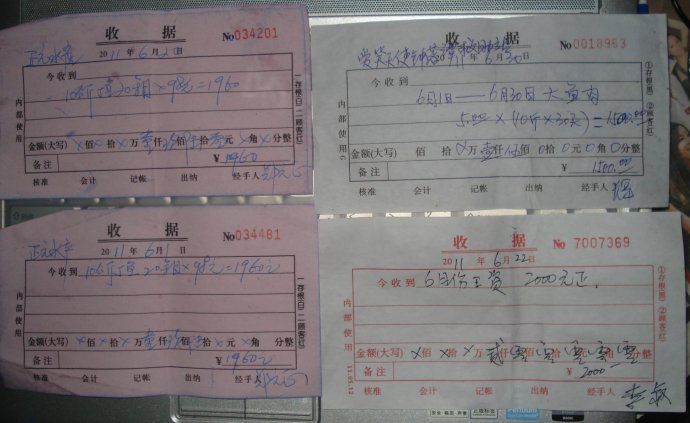 收 据
No034201
2011年6月2日
今收到
10斤鱼20箱×98元=1960
内部使用
一存根(白) 二顾客(红)
金额(大写)×佰×拾×万壹仟玖佰陆拾零元×角×分整
备注
¥1960
核准 会计 记帐 出纳 经手人
收 据
No0018963
2011年6月30日
今收到
6月1日——6月30日大鱼肉
5.00×(10斤×30天)=1500.00
内部使用6
①存根(黑) ②顾客(红)
金额(大写)佰拾万壹仟伍佰0拾0元0角0分整
备注
¥1500.00
核准 会计 记帐 出纳 经手人
收 据
No034481
2011年6月1日
今收到
10斤鱼20箱×98元=1960元
内部使用
一存根(白) 二顾客(红)
金额(大写)×佰×拾×万壹仟玖佰陆拾×元×角 分整
备注
¥1960元
核准 会计 记帐 出纳 经手人
收 据
No 7007369
2011年6月22日
今收到
6月份工资 2000元正.
内部使用
①存根(黑) ②顾客(红)
金额(大写)×佰×拾×万贰仟零佰零拾零元零角零分整
备注
¥2000
核准 会计 记帐 出纳 经手人
安全·稳定·声誉
正版标签
Pentium